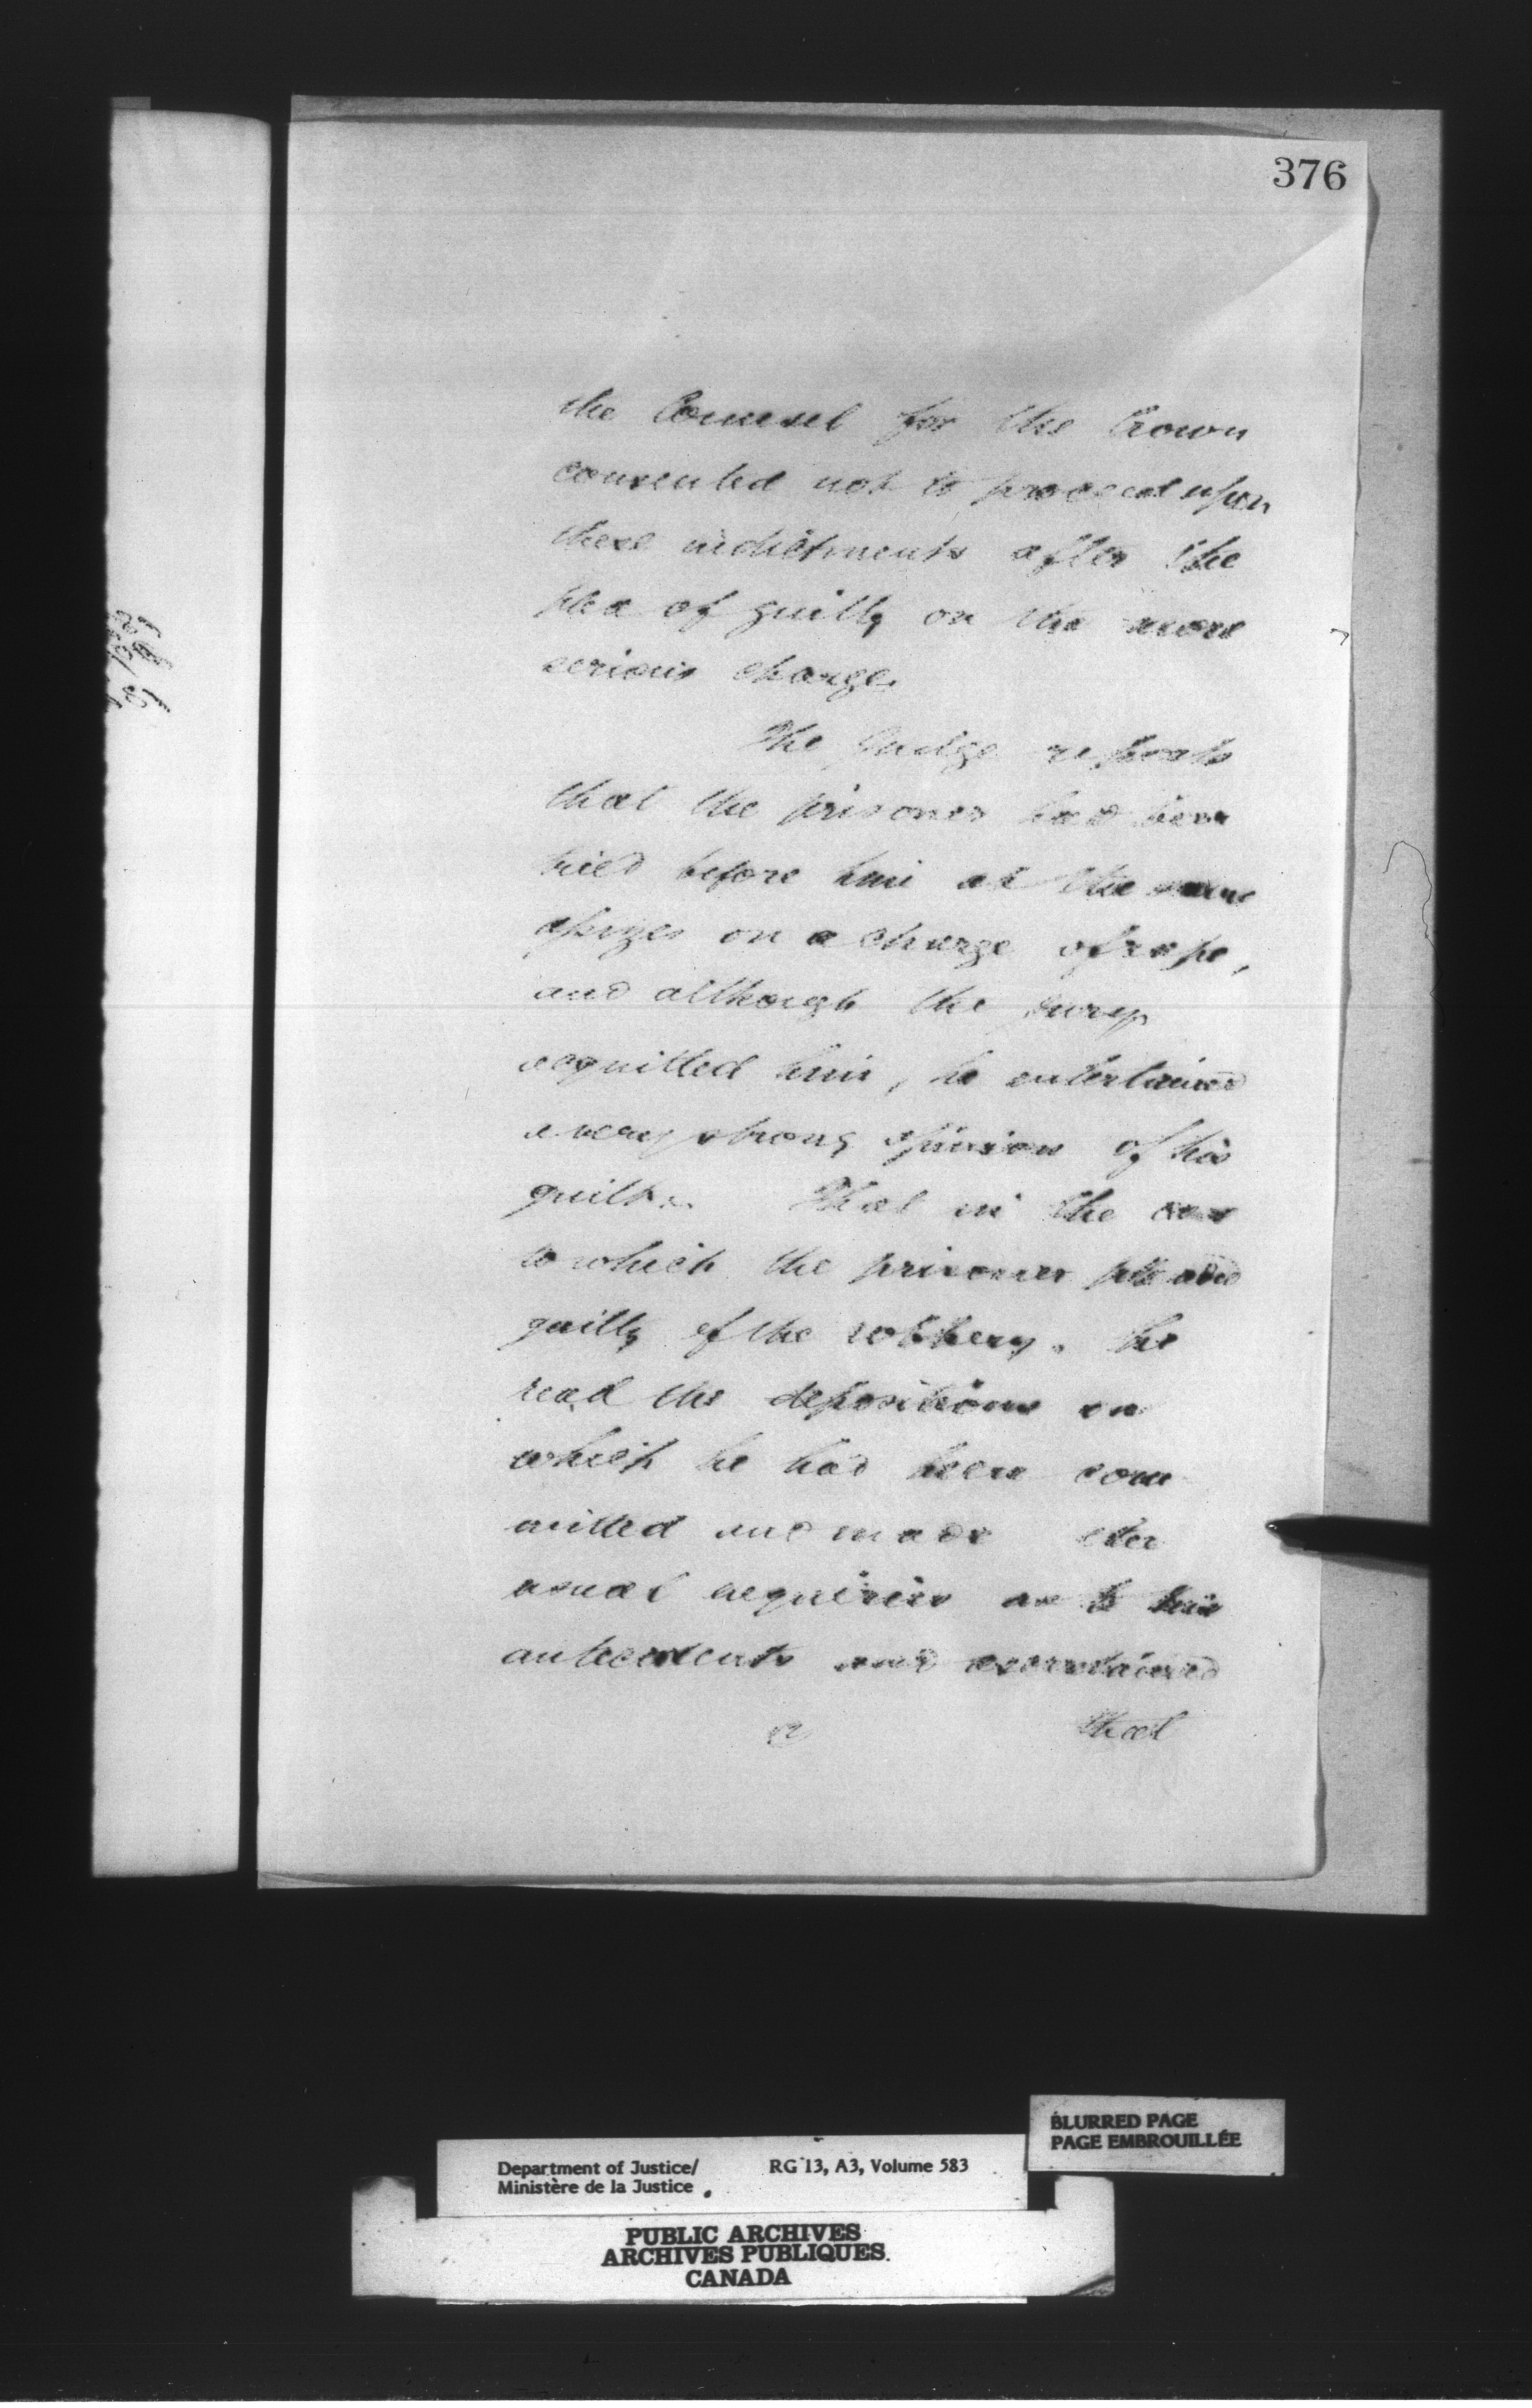 376
the Counsel for the Crown
consented not to proceed upon
these indictments after the
plea of guilty on the more
serious charge.
The Judge reports
that the prisoner had been
tried before him at the same
assizes on a charge of rape,
and although the jury
acquitted him, he entertained
a very strong opinion of his
guilt. That in the case
to which the prisoner plead
guilty of the robbery. he
read the depositions on
which he had been com
mitted and made the
usual enquiries as to his
antecedents and ascertained
that
BLURRED PAGE
PAGE EMBROUILLÉE
Department of Justice/ RG 13, A3, Volume 583
Ministère de la Justice
PUBLIC ARCHIVES
ARCHIVES PUBLIQUES
CANADA